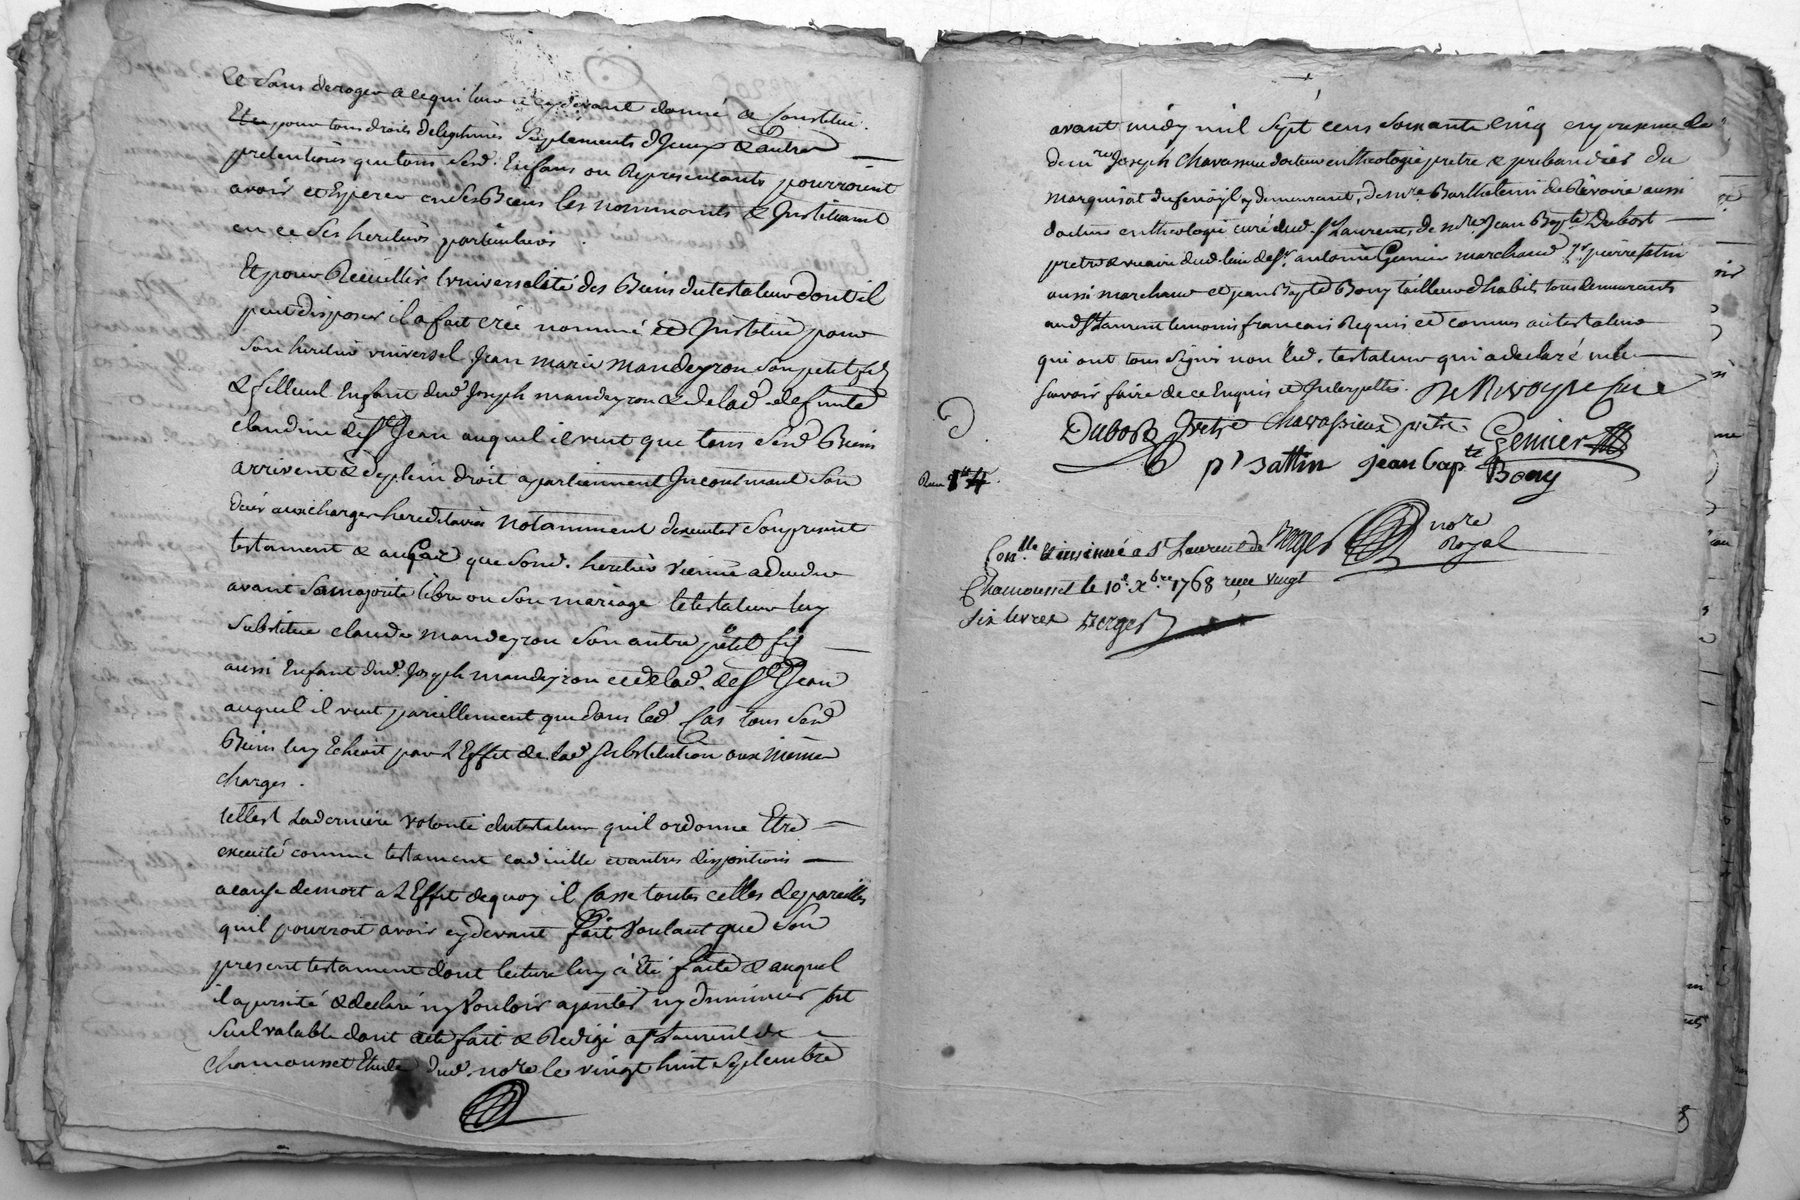 et sans deroger a ce qui leur a cy devant donné & constitué.
Et ce pour tous droits de legitimes suplements d'Iceux & autres
pretentions que tous sesd. Enfans ou Representants pourroient
avoir et Esperer en ses Biens les nommants & Instituant
en ce ses heritiers particuliers
Et pour Recüeillir l'universalité des Biens du testateur dont il
peut disposer il a fait créé nommé et Institué pour
son heritier universel Jean marie mandeyron son petit fils
& filleul Enfant dud. Joseph mandeyron & de lad. defunte
claudine de St Jean auquel il veut que tous sesd. Biens
arrivent & de plein droit apartiennent Incontinant son
décés aux charges hereditaires notamment dexecuter son present
testament & au cas que sond. heritier vienne a deceder
avant sa majorité libre ou son mariage le testateur luy
substitue claude mandeyron son autre petit fils
aussi Enfant dud. Joseph mandeyron et de lad. de St Jean
auquel il veut pareillement que dans led. cas tous sesd.
Biens luy Echeoit par l'Effet de lad. substitution aux mêmes
charges.
telle est la derniere volonté du testateur quil ordonne Etre
executé comme testament codicille et autres dispositions
a cause de mort a l'Effet de quoy il casse toutes celles de pareilles
quil pourroit avoir cy devant fait voulant que son
present testament dont lecture luy à Eté faite & auquel
il a persisté & declaré ny vouloir ajouter ny diminuer soit
seul valable dont acte fait & Redigé a St Laurent de
chamousset Etude dud. nore le vingt huit septembre
avant midy mil sept cens soixante cinq en presence de
de mre Joseph chavassieux docteur en theologie pretre & prebandier du
marquisat du fenoÿl y demeurant, de mre Barthelemi de Révoire aussi
docteur en theologie curé dud. St Laurent, de mre Jean Bapte Dubost
pretre & vicaire dud. lieu de Sr. antoine Genier marchand Sr. pierre satin
aussi marchand et jean Bapte Bony tailleur d'habits tous demeurants
aud. St Laurent temoins francais Requis et connus au testateur
qui ont tous signé non led. testateur qui a declaré ne
savoir faire de ce Enquis et Interpellés. De Rivoyre Curé
Dubost Pretre chavassieux pretre Genier
pr sattin jean bap.te Bony
Con.lle et insinué a St Laurent de Berger nore Royal
Chamousset le 10e. xbre 1768 reçu vingt
six livres Berger